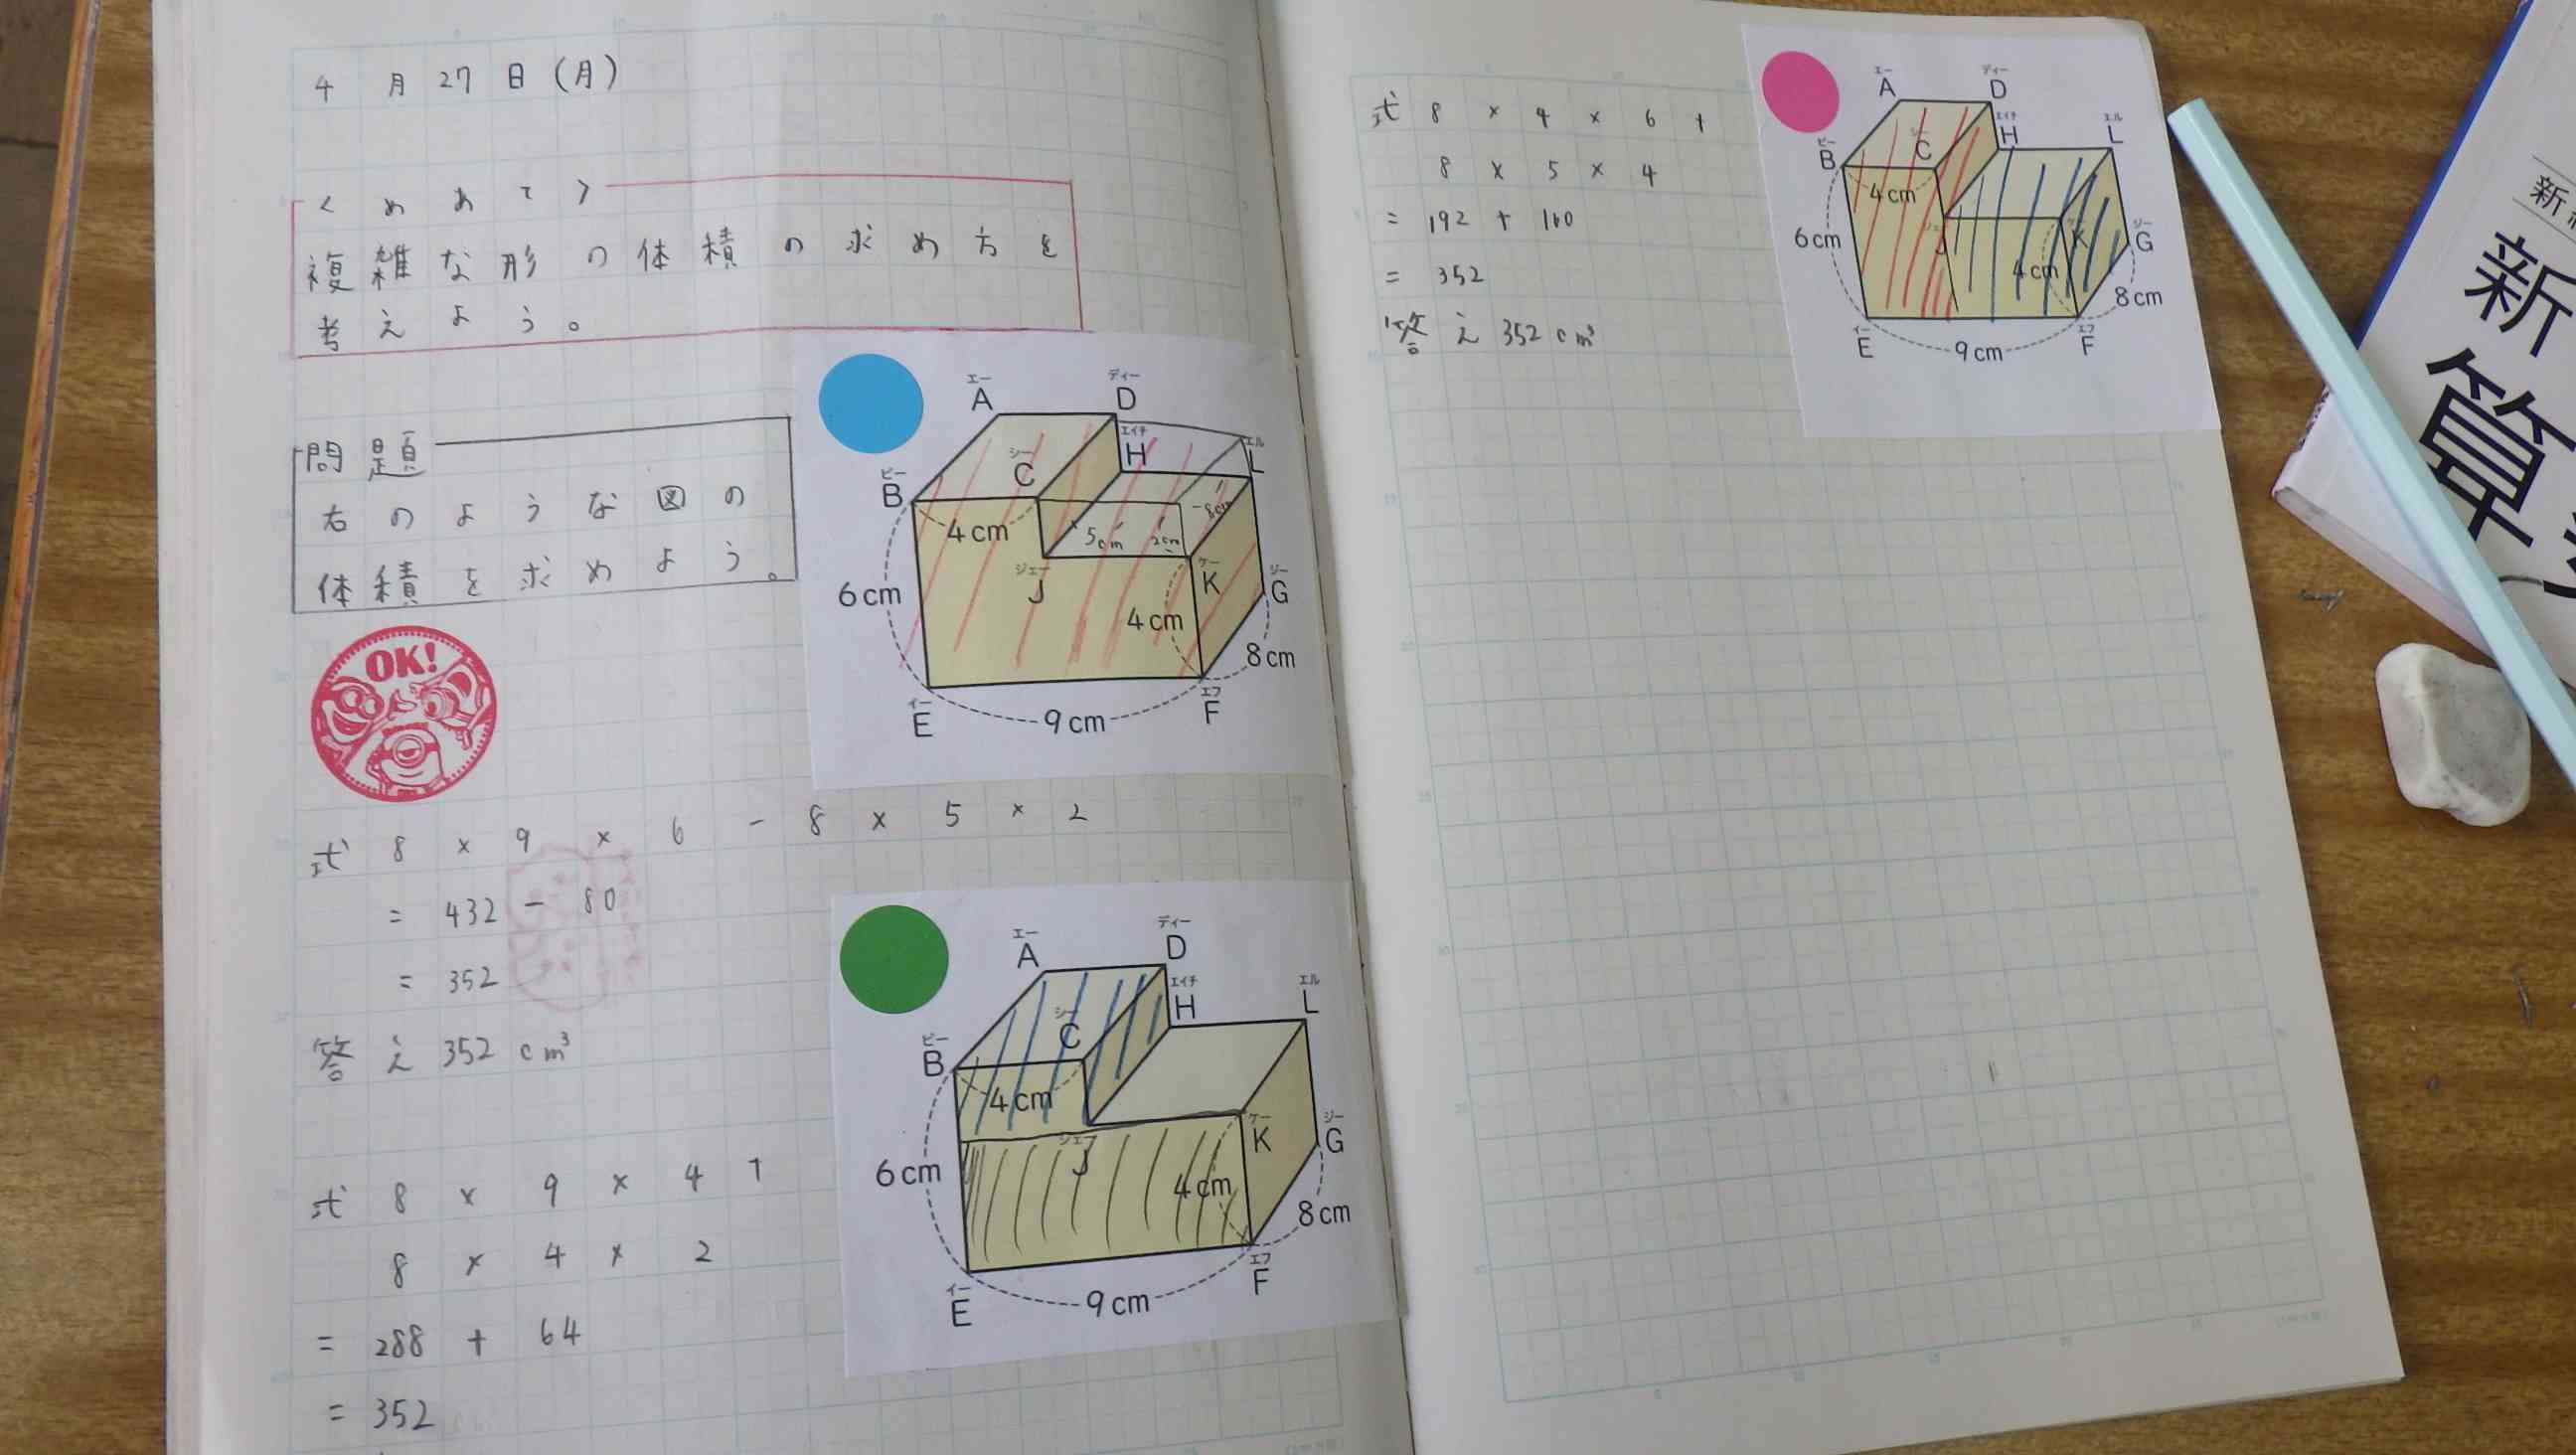 4月27日(月)
<めあて>
複雑な形の体積の求め方を
考えよう。
問題
右のような図の
体積を求めよう。
エー
A
ディー
D
エイチ
H
エル
L
ビー
B
シー
C
4cm
5cm
2cm
8cm
ジェー
J
ケー
K
ジー
G
6cm
4cm
8cm
イー
E
9cm
エフ
F
OK!
式 8×9×6-8×5×2
=432-80
=352
答え 352cm³
エー
A
ディー
D
エイチ
H
エル
L
ビー
B
シー
C
4cm
ジェー
J
ケー
K
ジー
G
6cm
4cm
8cm
イー
E
9cm
エフ
F
式 8×9×4+
8×4×2
=288+64
=352
式 8×4×6+
8×5×4
=192+160
=352
答え 352cm³
エー
A
ディー
D
エイチ
H
エル
L
ビー
B
シー
C
4cm
ジェー
J
ケー
K
ジー
G
6cm
4cm
8cm
イー
E
9cm
エフ
F
新
算